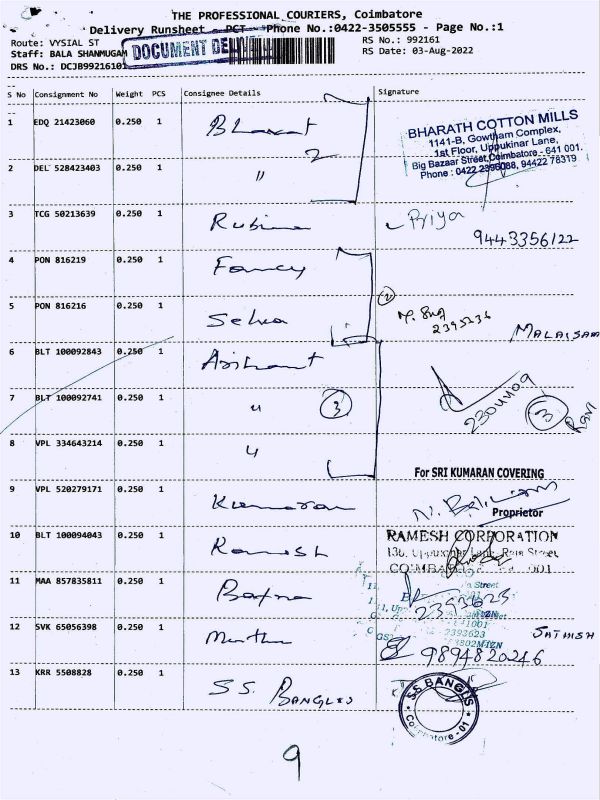 THE PROFESSIONAL COURIERS, Coimbatore
Delivery Runsheet - PCT - Phone No.:0422-3505555 - Page No.:1
Route: VYSIAL ST
RS No.: 992161
Staff: BALA SHANMUGAM
DOCUMENT
RS Date: 03-Aug-2022
DRS No.: DCJB99216101
S No Consignment No Weight PCS Consignee Details Signature
1 EDQ 21423060 0.250 1 Bharat
BHARATH COTTON MILLS
1141-B, Gowtham Complex,
1st Floor, Uppukinar Lane,
Big Bazaar Street, Coimbatore - 641 001.
Phone : 0422 2396088, 94422 78319
2
2 DEL 528423403 0.250 1 "
3 TCG 50213639 0.250 1 Rubina Priya
9443356122
4 PON 816219 0.250 1 Fancy
2
5 PON 816216 0.250 1 Selva
2395236
MALAISAMY
6 BLT 100092843 0.250 1 Arihant
7 BLT 100092741 0.250 1 " 3
2304409
3
Ravi
8 VPL 334643214 0.250 1 "
For SRI KUMARAN COVERING
9 VPL 520279171 0.250 1 Kumaran
Proprietor
10 BLT 100094043 0.250 1 Ramesh
RAMESH CORPORATION
11 MAA 857835811 0.250 1 Bafna
2393623
12 SVK 65056398 0.250 1
2393623
SATHISH
9894820246
13 KRR 5508828 0.250 1 S.S. BANGLES
SS BANGLES
Coimbatore - 01
9